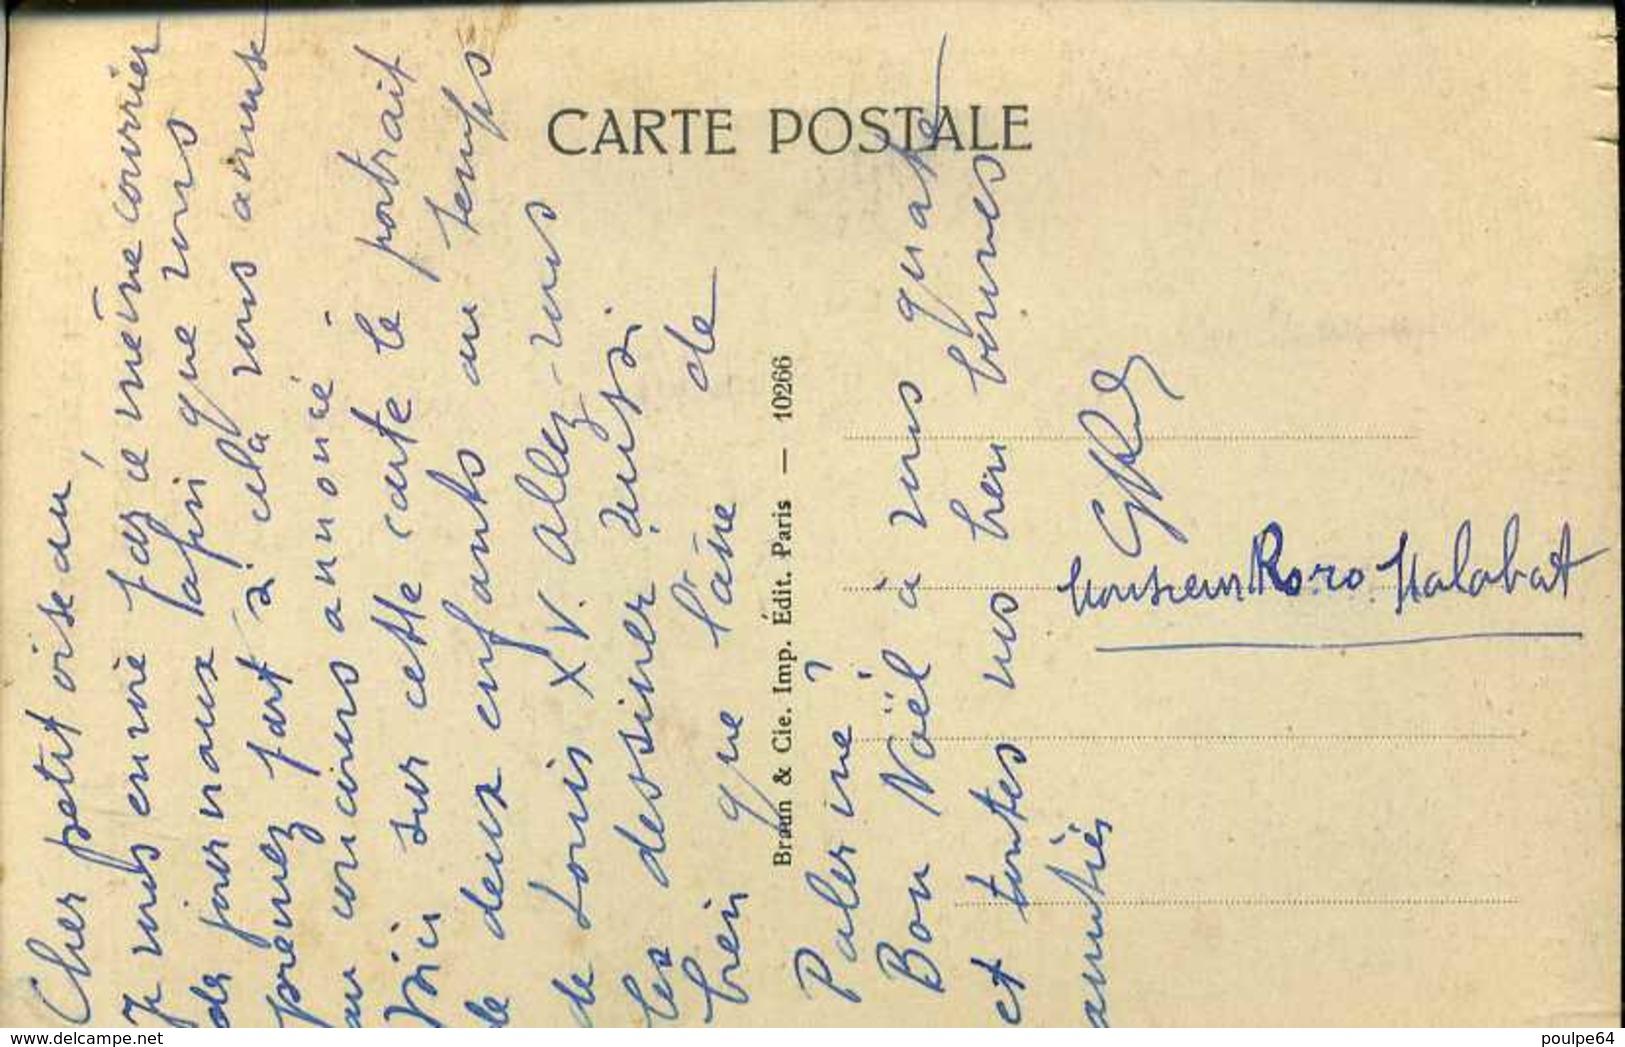 CARTE POSTALE
Braun & Cie. Imp. Édit. Paris — 10266
Cher petit oiseau,
Je vous envoie par ce même courrier
des journaux afin que vous
preniez part si cela vous amuse
au concours annoncé
Voici sur cette carte le portrait
de deux enfants au temps
de Louis XV. Allez-vous
les dessiner aussi
bien que l'âne de
Palerme ?
Bon Noël à vous quatre
et toutes nos bien bonnes
amitiés
Monsieur Roro Malabat
delcampe.net
poulpe64